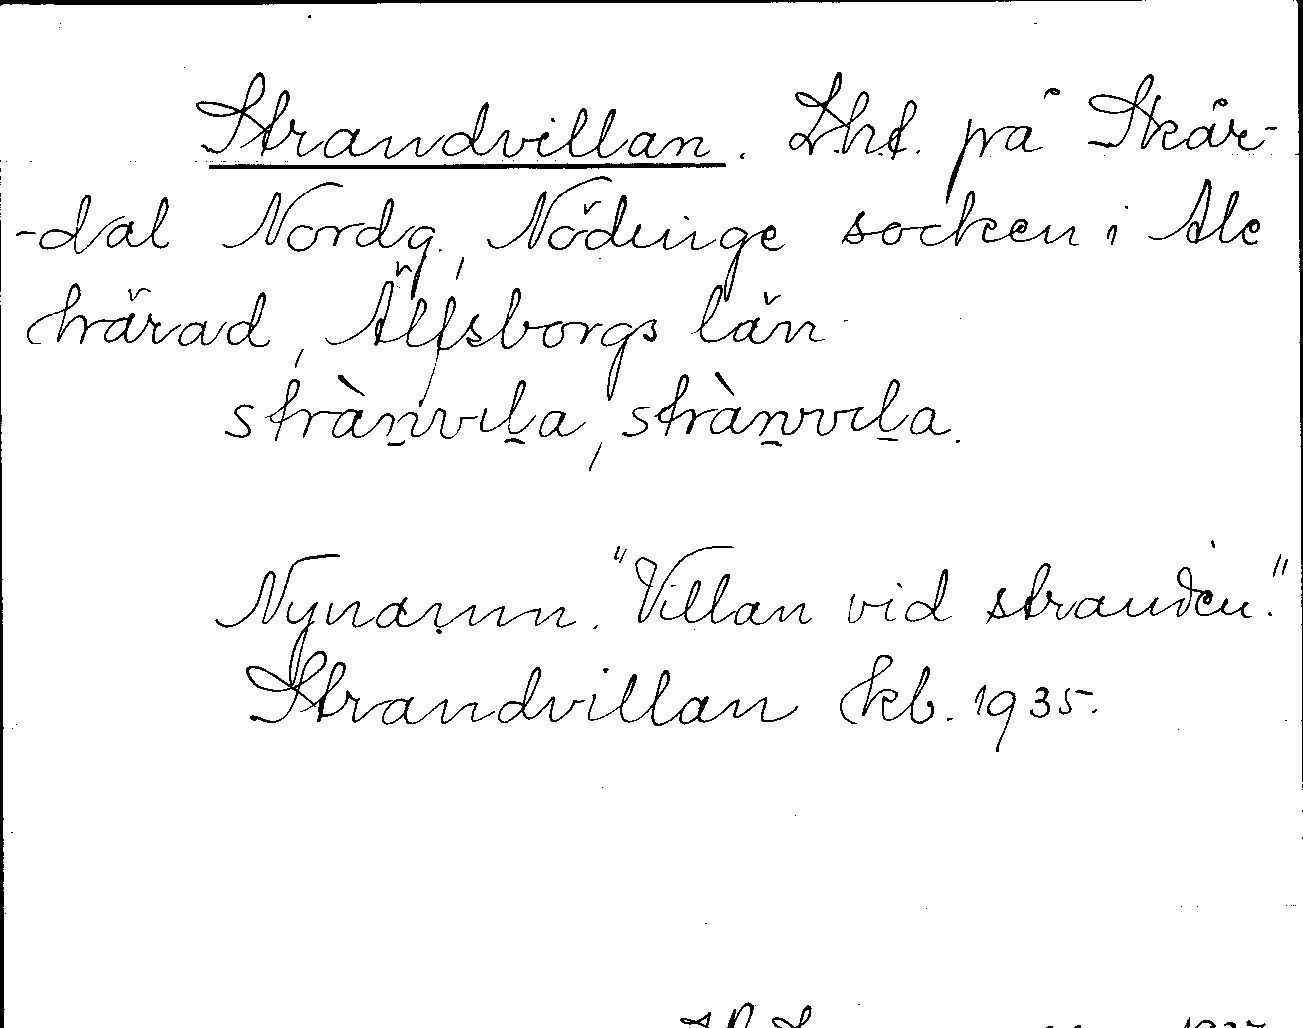 Strandvillan. Lht. på Skår-
-dal Nordg., Nödinge socken i Ale
härad, Älfsborgs län
stràn̠vıl̠a, stràn̠vıl̠a.
Nynamn. "Villan vid stranden."
Strandvillan kb. 1935.